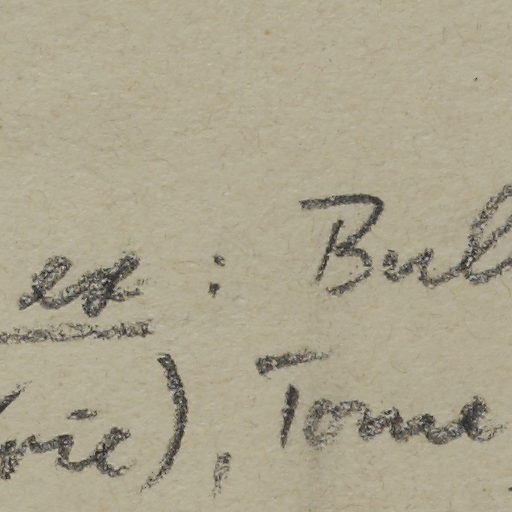 es : Bul
rie), Tome